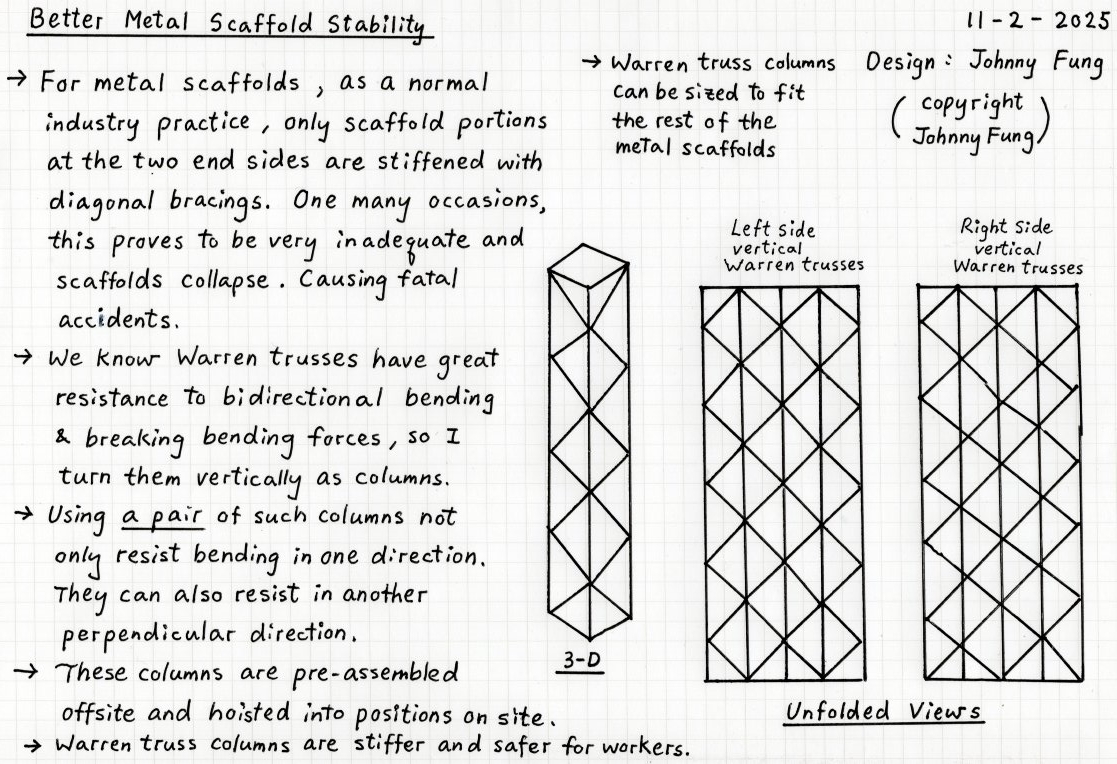 Better Metal Scaffold Stability
11-2-2025
→ For metal scaffolds, as a normal
industry practice, only scaffold portions
at the two end sides are stiffened with
diagonal bracings. One many occasions,
this proves to be very inadequate and
scaffolds collapse. Causing fatal
accidents.
→ We know Warren trusses have great
resistance to bidirectional bending
& breaking bending forces, so I
turn them vertically as columns.
→ Using a pair of such columns not
only resist bending in one direction.
They can also resist in another
perpendicular direction.
→ These columns are pre-assembled
offsite and hoisted into positions on site.
→ Warren truss columns are stiffer and safer for workers.
→ Warren truss columns
can be sized to fit
the rest of the
metal scaffolds
Design: Johnny Fung
(copyright
Johnny Fung)
3-D
Left side
vertical
Warren trusses
Right side
vertical
Warren trusses
Unfolded Views